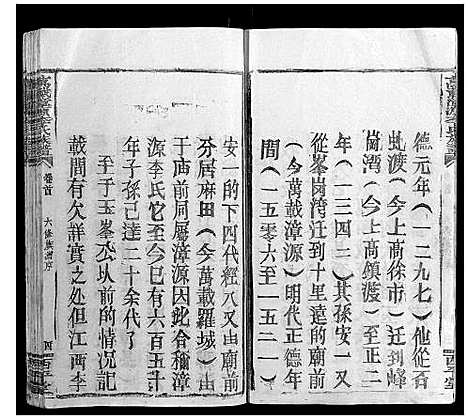 德元年（一二九七）他從
虬渡（今上高徐市）迁到峰
崗湾（今上高鎮渡）至正二
年（一三四二）其孫安一又
從峯崗湾迁到十里遠的廟前
（今萬載漳源）明代正德年
間（一五〇六至一五二一）
安一的下四代經八又由廟前
分居麻田（今萬載羅城）由
于庙前同屬漳源因此合稱漳
源李氏它至今已有六百五十
年子孫已達二十余代了
至于玉峯公以前的情况記
載間有欠祥實之处但江西李
萬載漳源李氏族譜
卷首
六修族譜序
四
西平堂